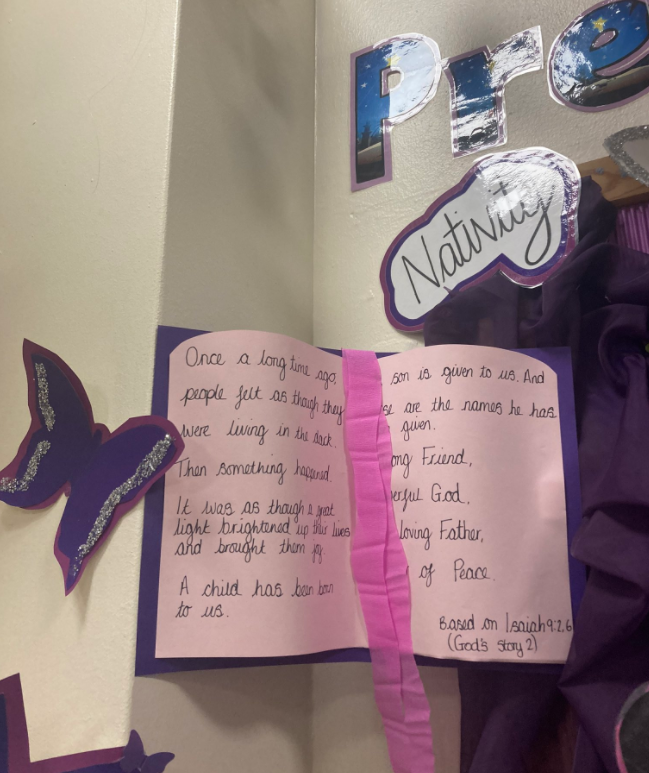 Pre
Nativity
Once a long time ago,
people felt as though they
were living in the dark.
Then something happened.
It was as though a great
light brightened up their lives
and brought them joy.
A child has been born
to us.
son is given to us. And
are the names he has
given.
Friend,
God,
loving Father,
of Peace.
Based on Isaiah 9:2,6
(God's story 2)